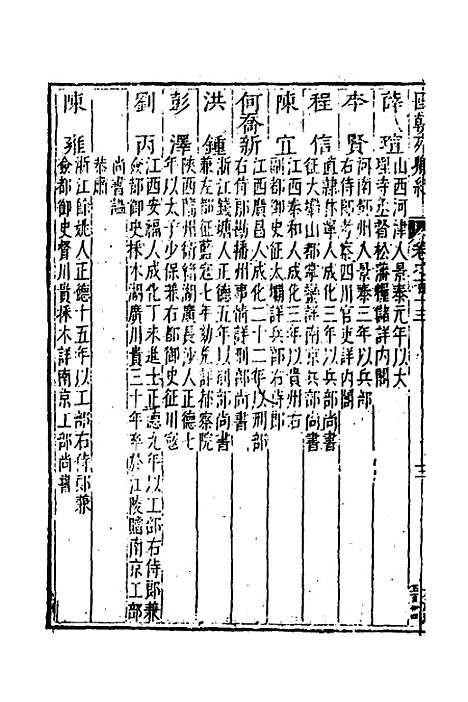 國朝列卿紀 卷之一百十三 十二
薛瑄 山西河津人景泰元年以大
理寺丞督松藩糧儲詳內閣
李賢 河南鄧州人景泰三年以兵部
右侍郎考察四川官吏詳內閣
程信 直隸休寧人成化三年以兵部尚書
征大壩山都掌蠻詳南京兵部尚書
陳宜 江西泰和人成化三年以貴州右
副都御史征大壩詳兵部右侍郎
何喬新 江西廣昌人成化二十二年以刑部
右侍郎勘播州事情詳刑部尚書
洪鍾 浙江錢塘人正德五年以刑部尚書
兼左都征藍寇七年劾免詳都察院
彭澤 陝西衛籍湖廣長沙人正德七
年以太子少保兼右都御史征川寇
劉丙 江西安福人成化丁未進士正德九年以工部右侍郎兼
僉都御史採木湖廣川貴三十年卒於江陵贈南京工部
尚書謚
恭肅
陳雍 浙江餘姚人正德十五年以工部右侍郎兼
僉都御史督川貴採木詳南京工部尚書